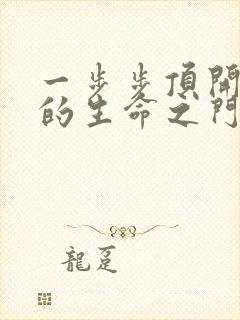 一步步頂開
的生命之門
龍跫